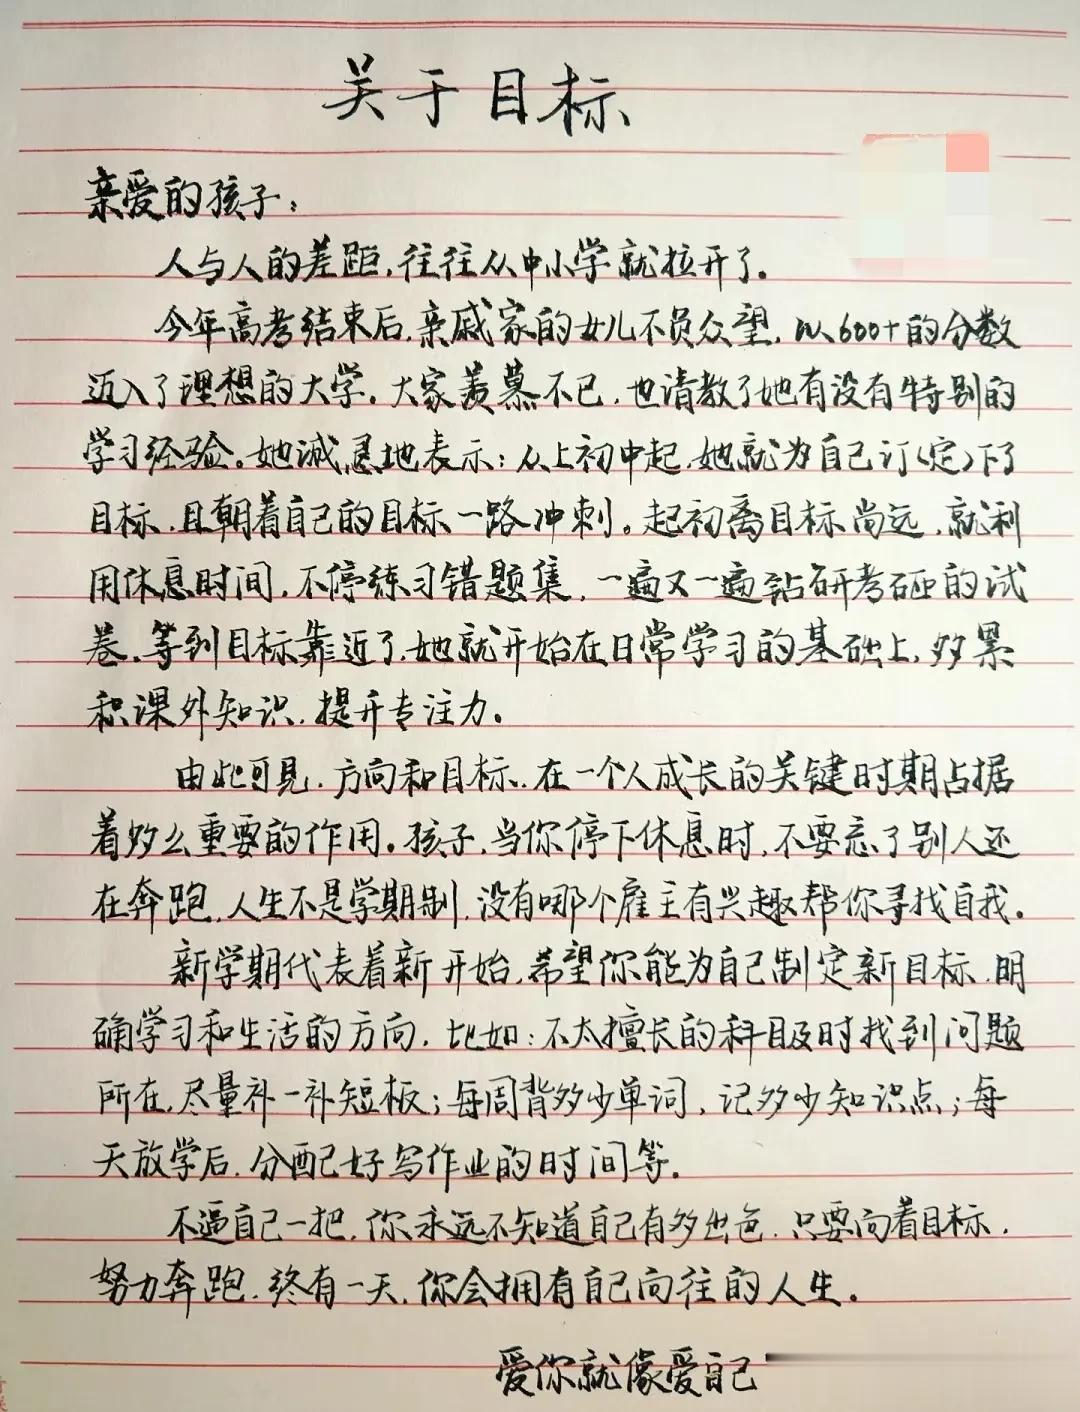 关于目标
亲爱的孩子：
人与人的差距，往往从中小学就拉开了。
今年高考结束后，亲戚家的女儿不负众望，以600+的分数
迈入了理想的大学。大家羡慕不已，也请教了她有没有特别的
学习经验。她诚恳地表示：从上初中起，她就为自己订(定)下了
目标，且朝着自己的目标一路冲刺。起初离目标尚远，就利
用休息时间，不停练习错题集，一遍又一遍钻研考砸的试
卷，等到目标靠近了，她就开始在日常学习的基础上，多累
积课外知识，提升专注力。
由此可见，方向和目标，在一个人成长的关键时期占据
着多么重要的作用。孩子，当你停下休息时，不要忘了别人还
在奔跑，人生不是学期制，没有哪个雇主有兴趣帮你寻找自我。
新学期代表着新开始，希望你能为自己制定新目标，明
确学习和生活的方向，比如：不太擅长的科目及时找到问题
所在，尽量补一补短板；每周背多少单词，记多少知识点；每
天放学后，分配好写作业的时间等。
不逼自己一把，你永远不知道自己有多出色，只要向着目标，
努力奔跑，终有一天，你会拥有自己向往的人生。
爱你就像爱自己